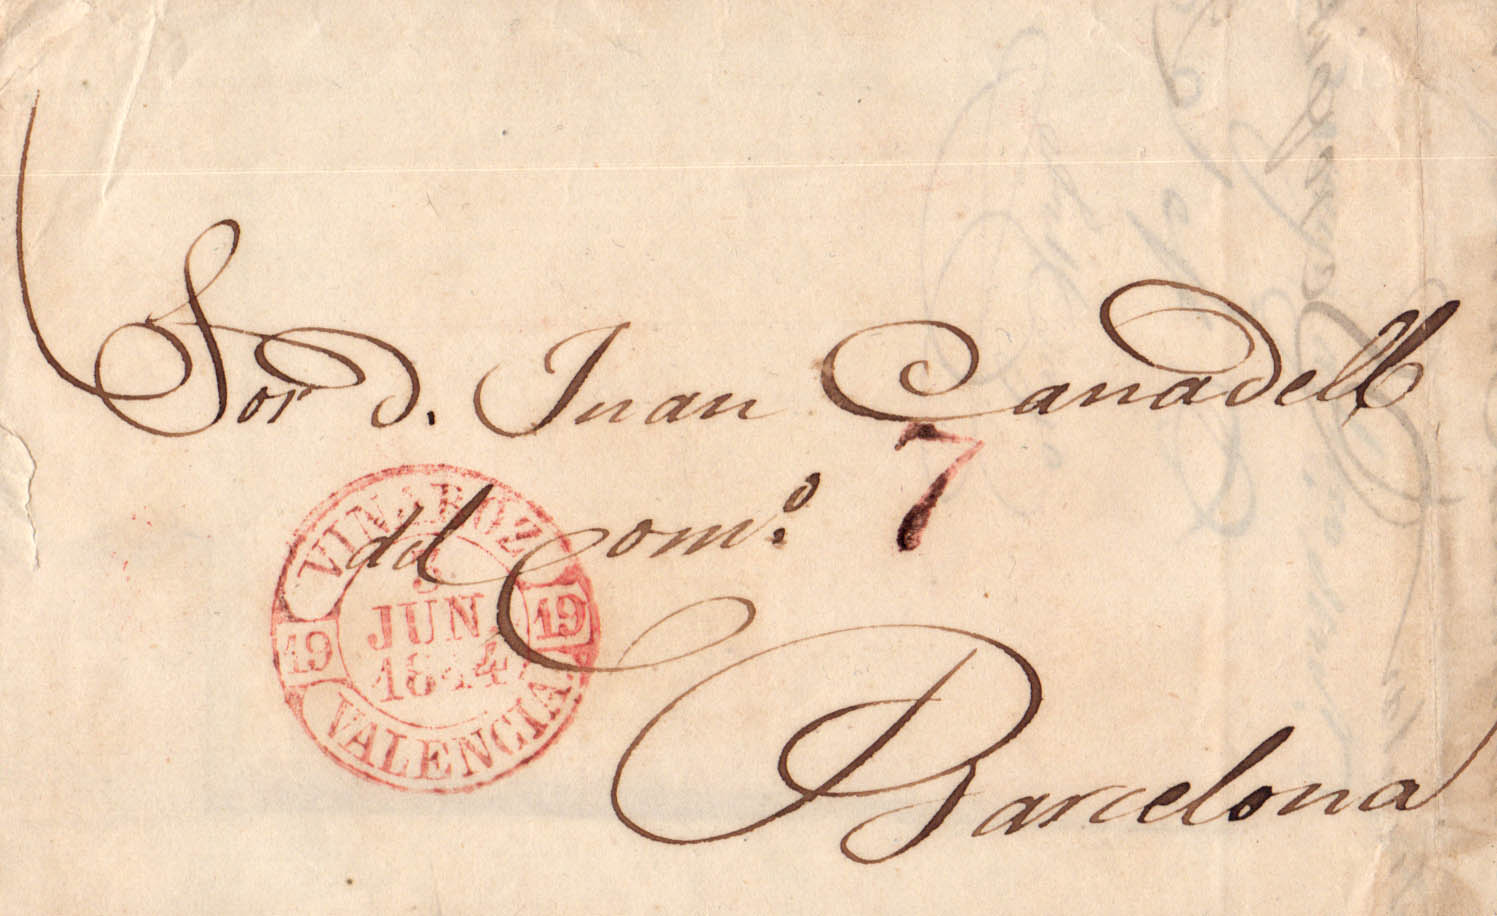 Sor d. Juan Canadell
7
del Comº.
VINAROZ
JUN.
1844
19 19
VALENCIA
Barcelona